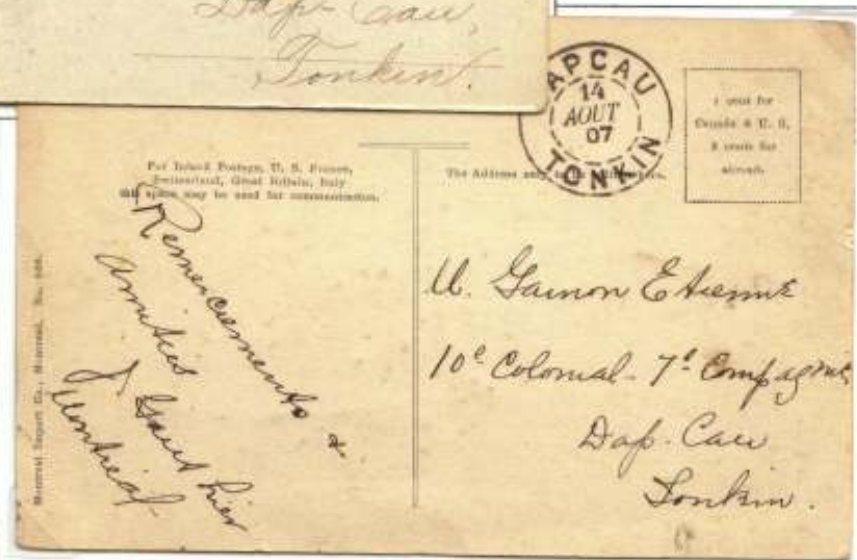 Dap-Cau,
Tonkin.
DAPCAU
14
AOUT
07
TONKIN
1 cent for
Canada & U. S,
2 cents for
abroad.
For Inland Postage, U. S. France,
Switzerland, Great Britain, Italy
this space may be used for communication.
The Address only
Remerciements &
amitiés
J Gauthier
Montreal
Montreal Import Co., Montreal, No.
M. Gamon Etienne
10e Colonial - 7e Compagnie
Dap. Cau
Tonkin.